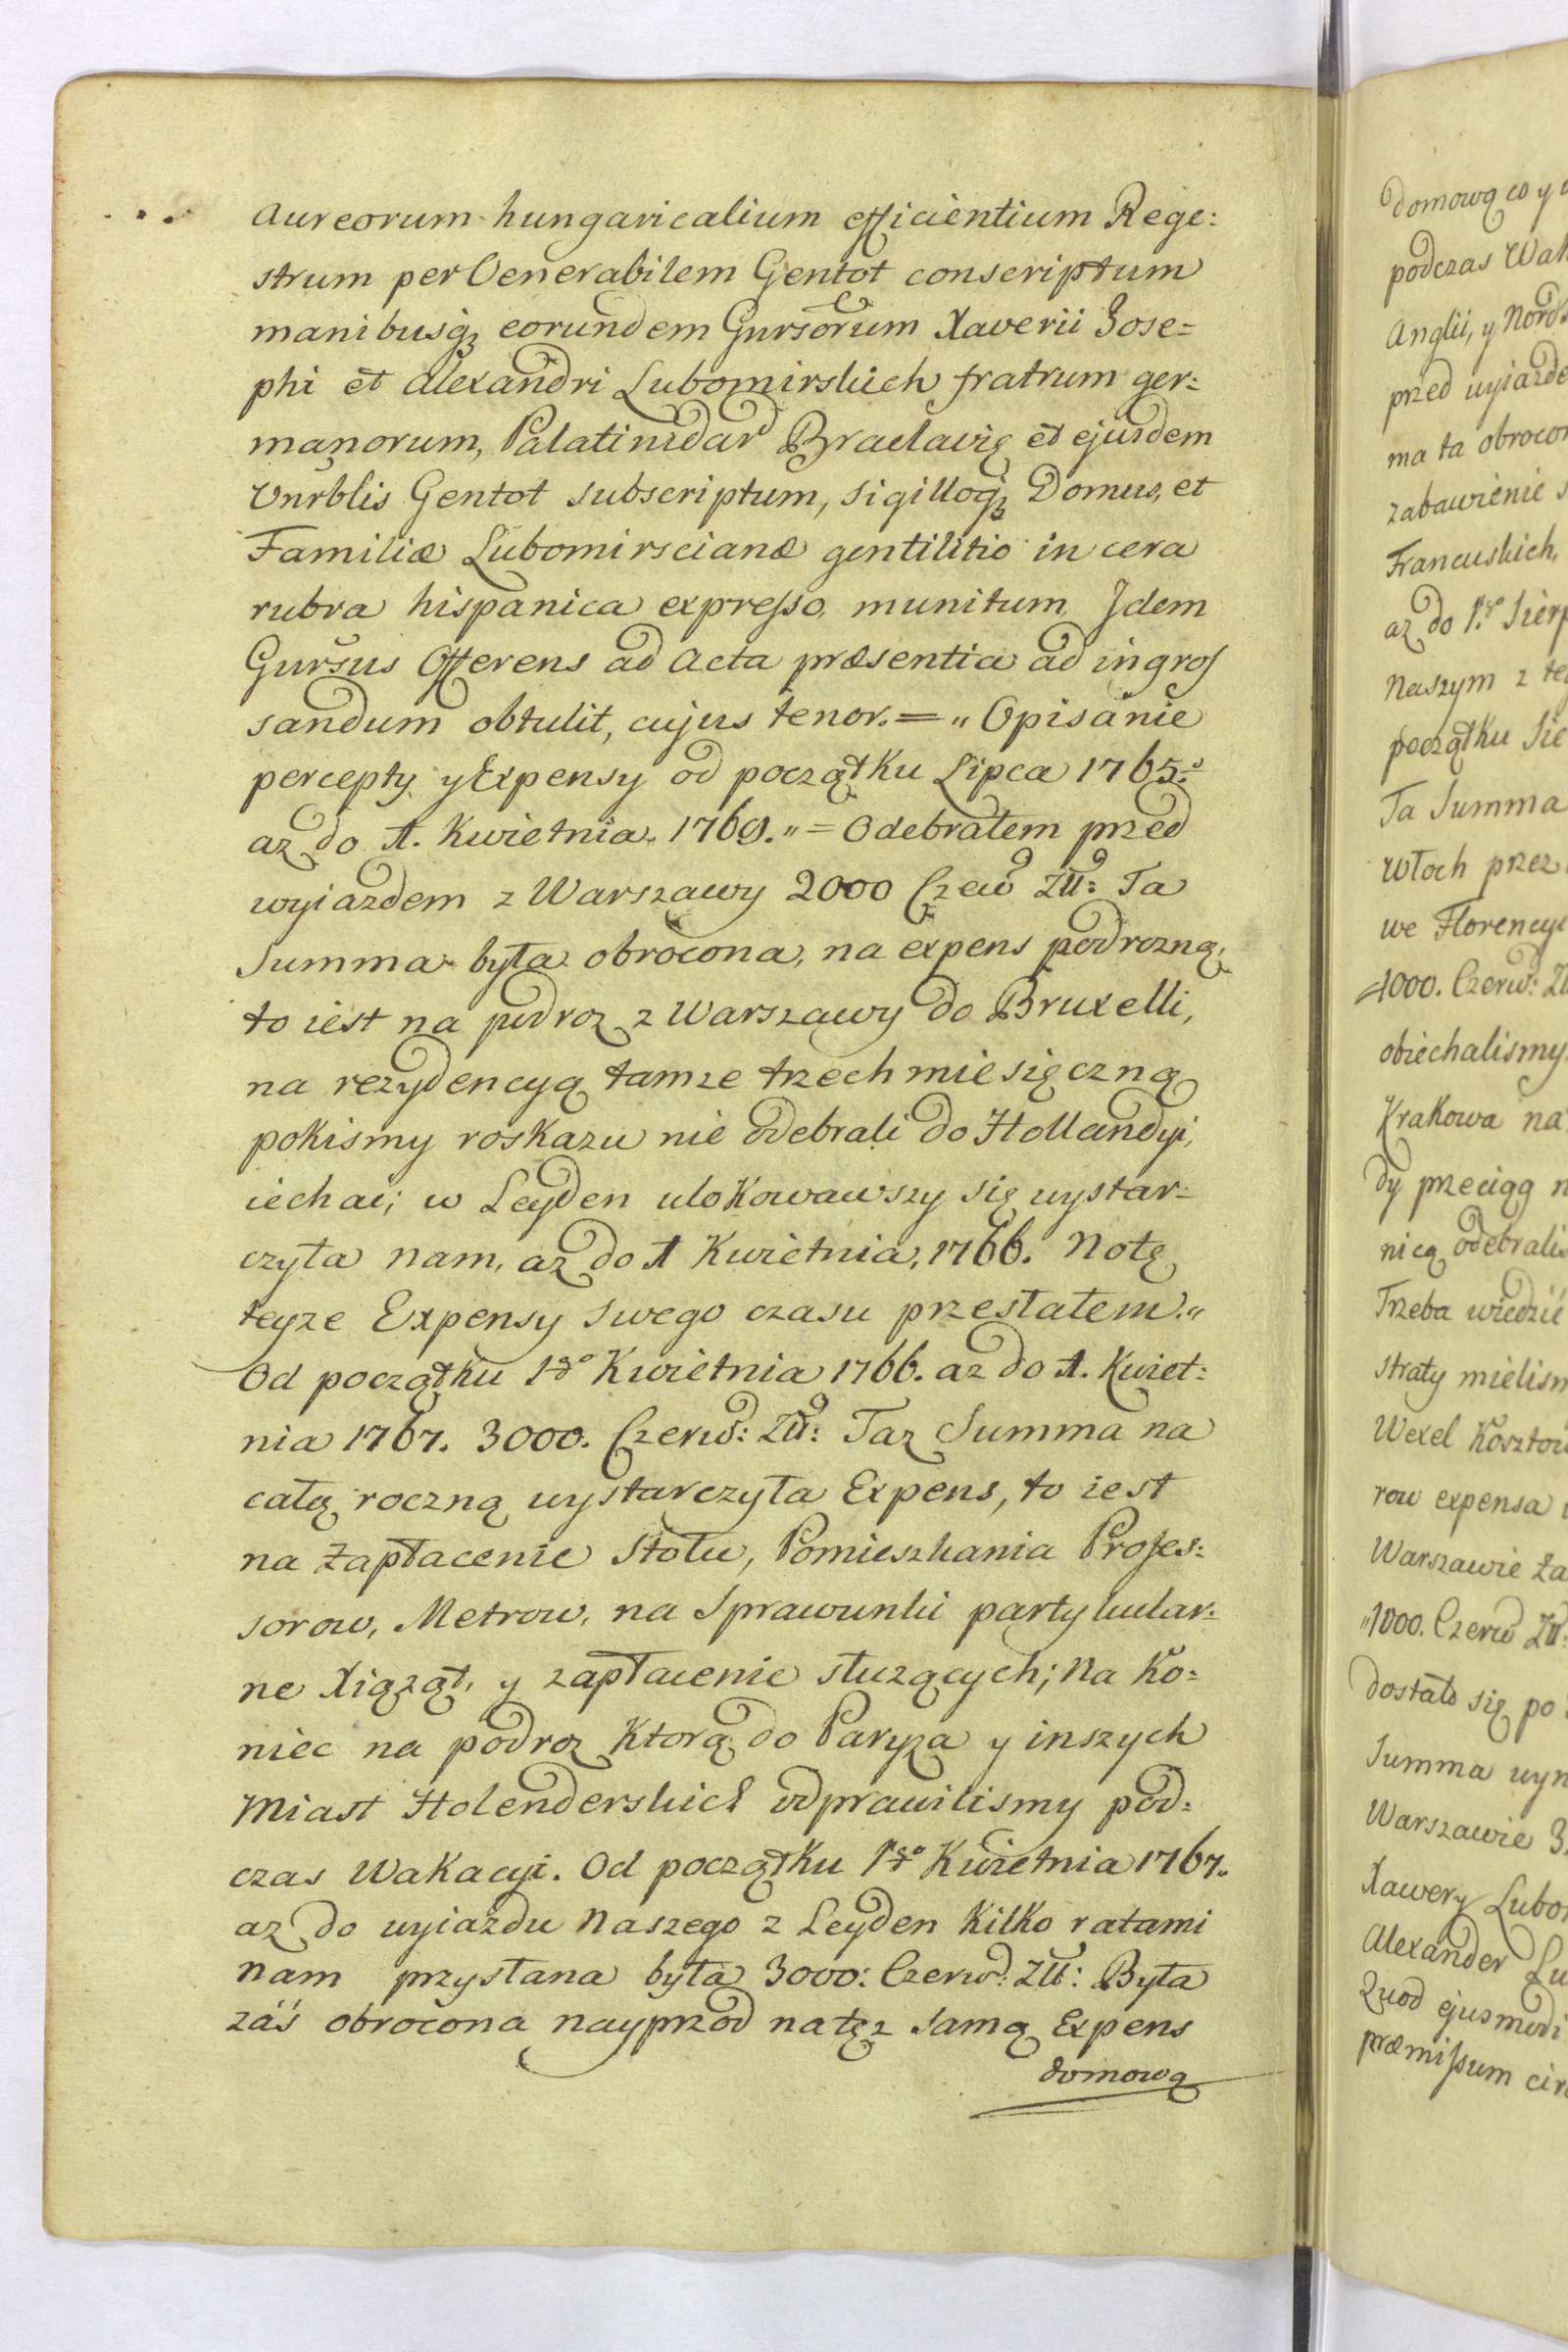 aureorum hungaricalium efficientium Rege:
strum per Venerabilem Gentot conscriptum
manibusq3 eorundem Gursorum Xaverii Jose=
phi et Alexandri Lubomirskich fratrum ger=
manorum, Palatinidar Braclavię et ejusdem
Vnrblis Gentot subscriptum, sigilloq3 Domus, et
Familiæ Lubomirscianæ gentilitio in cera
rubra hispanica expresso, munitum, Jdem
Gursus Offerens ad Acta præsentia ad ingros
sandum obtulit, cujus tenor. = „ Opisanie
percepty y Expensy od początku Lipca 1765.
az do 1. Kwietnia. 1769. „ = Odebrałem przed
wyiazdem z Warszawy 2000 Czew Zll: Ta
Summa była obrocona, na expens podrozną,
to iest na podroz z Warszawy do Bruxelli,
na rezydencyą tamze trzech miesięczną
pokismy roskazu nie odebrali do Hollandyi,
iechac; w Leyden ulokowawszy się wystar=
czyła nam, az do 1 Kwietnia, 1766. Notę
teyze Expensy swego czasu przesłałem. „
Od początku 1go Kwietnia 1766. az do 1. Kwiet:
nia 1767. 3000. Czerw: Zll: Taz Summa na
całą roczną wystarczyła Expens, to iest
na Zapłacenie Stołu, Pomieszkania Profes:
sorow, Metrow, na Sprawunki partykular:
ne Xiąząt, y zapłacenie słuzących; Na Ko:
niec na podroz Ktorą do Paryza y inszych
Miast Holenderskich odprawilismy pod:
czas Wakacyi. Od początku 1go Kwietnia 1767.
az do wyiazdu Naszego z Leyden Kilko ratami
nam przysłana była 3000: Czerw: Zll: Była
záś obrocona nayprzod na tęz samą Expens
domową
domową co y
podczas
Anglii, y
przed
ma ta
zabawienie
Francuskich,
az do 1go
Naszym z
początku
Ta Summa
Włoch przez
we
1000. Czerw:
obiechalismy
Krakowa na
dy przeciąg
nicą
Trzeba wiedzić
straty
Wexel
row expensa
Warszawie
„1000. Czerw Zll:
dostało się po
Summa
Warszawie
Xawery
Alexander
Quod ejusmodi
præmissum